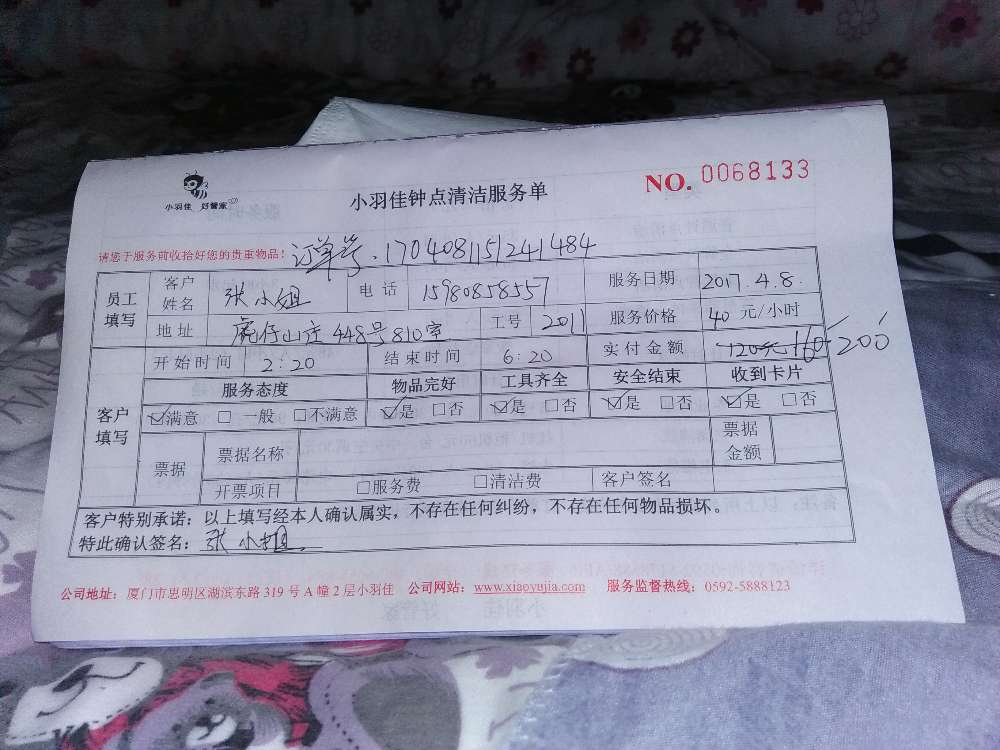 小羽佳 好管家
小羽佳钟点清洁服务单
NO. 0068133
请您于服务前收拾好您的贵重物品!
订单号.170408151241484
员工填写 客户姓名 张小姐 电话 15980858557 服务日期 2017.4.8.
地址 虎仔山庄448号810室 工号 2011 服务价格 40 元/小时
客户填写 开始时间 2:20 结束时间 6:20 实付金额 120元 160 200
服务态度 物品完好 工具齐全 安全结束 收到卡片
☑满意 □ 一般 □不满意 ☑是 □否 ☑是 □否 ☑是 □否 ☑是 □否
票据 票据名称 票据金额
开票项目 □服务费 □清洁费 客户签名
客户特别承诺:以上填写经本人确认属实,不存在任何纠纷,不存在任何物品损坏。
特此确认签名:张小姐
公司地址:厦门市思明区湖滨东路 319 号 A 幢 2 层小羽佳 公司网站:www.xiaoyujia.com 服务监督热线:0592-5888123